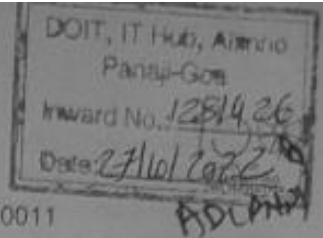 DOIT, IT Hub, Altinho
Panaji-Goa
Inward No.
Date: 27/10/2022
0011